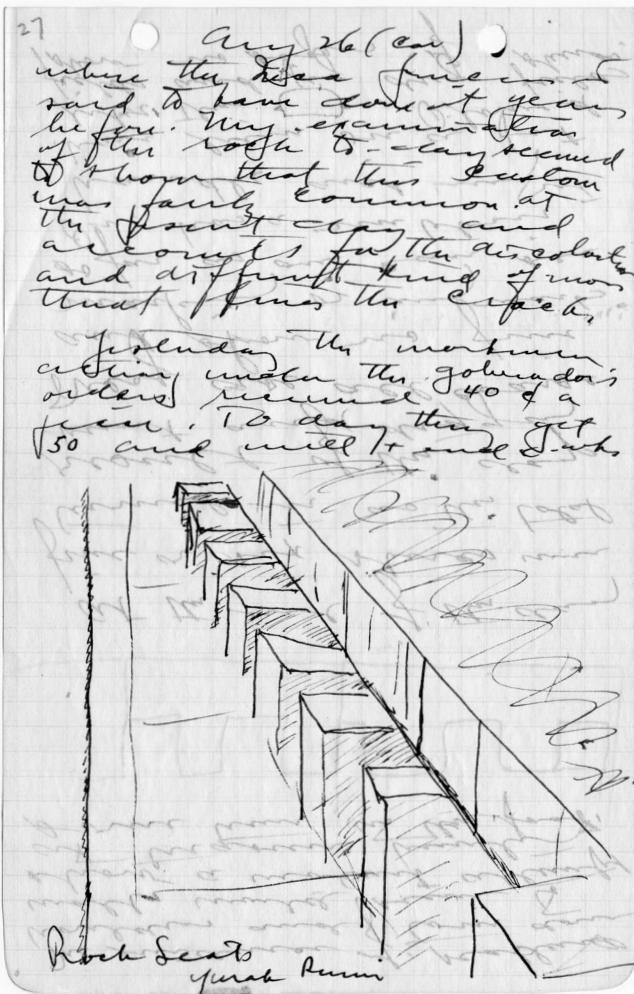 27
Aug 26 (con)
where the Inca princess is
said to have done it years
before. My examination
of the rock to-day seemed
to show that this custom
was fairly common at
the present day and
accounts for the discoloration
and different kind of moss
that lines the crack.
Yesterday the workmen
acting under the gobernador's
orders received 40 ¢ a
piece. To day they get
50 and will
Rock Seats
Yurak Rumi